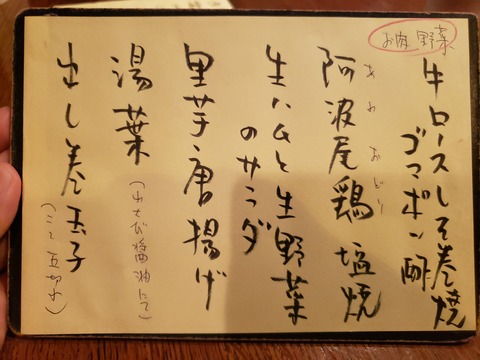 お肉 野菜
牛ロースしそ巻焼
ゴマポン酢
阿波尾鶏 塩焼
あわ おどり
生ハムと生野菜
のサラダ
里芋唐揚げ
湯葉
(わさび醤油にて)
出し巻玉子
(ミニ五切れ)